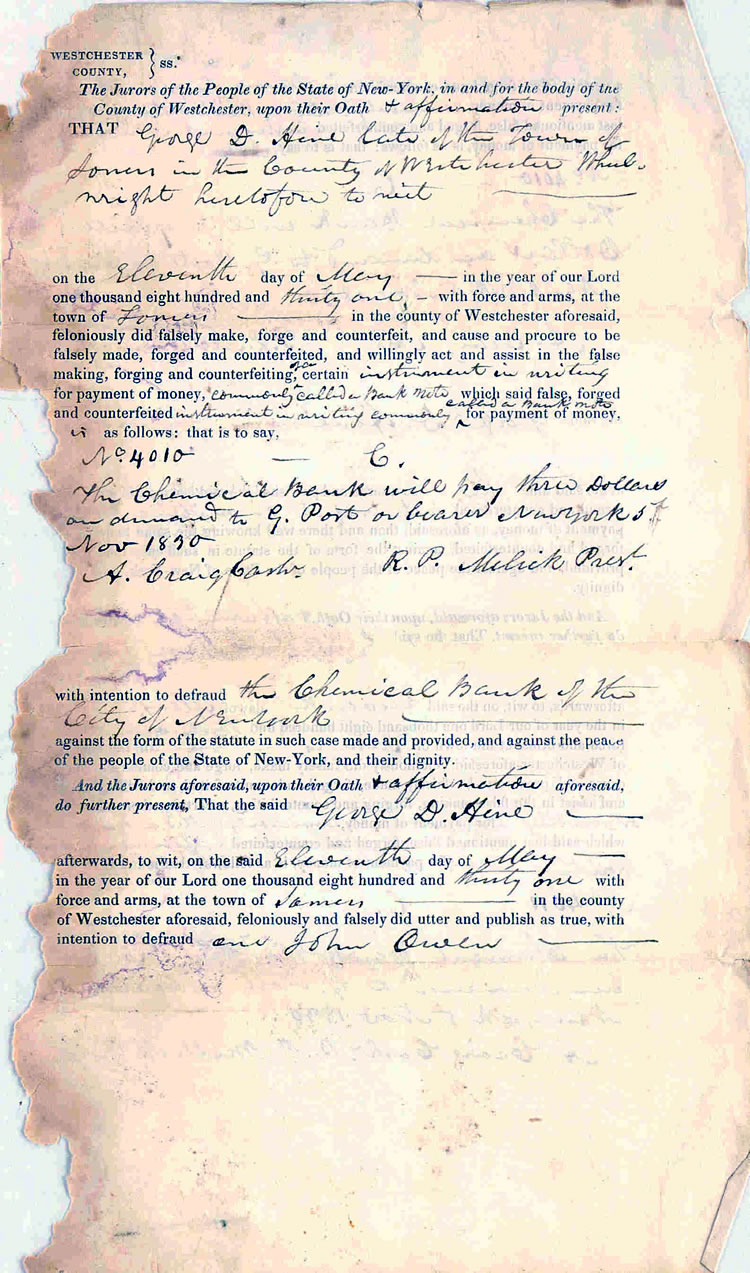 WESTCHESTER
COUNTY, } ss.
The Jurors of the People of the State of New-York, in and for the body of the
County of Westchester, upon their Oath & affirmation present:
THAT George D. Hine late of the Town of
Somers in the County of Westchester Wheel-
wright heretofore to wit
on the Eleventh day of May — in the year of our Lord
one thousand eight hundred and thirty one, – with force and arms, at the
town of Somers — in the county of Westchester aforesaid,
feloniously did falsely make, forge and counterfeit, and cause and procure to be
falsely made, forged and counterfeited, and willingly act and assist in the false
making, forging and counterfeiting, of a certain instrument in writing
for payment of money, commonly called a Bank Note which said false, forged
and counterfeited instrument in writing commonly called a Bank Note for payment of money,
is as follows: that is to say,
No. 4010 — C.
The Chemical Bank will pay three Dollars
on demand to G. Post or bearer New York 5th
Nov 1830
A. Craig Cashr. R. P. Melick Prest.
with intention to defraud the Chemical Bank of the
City of New York
against the form of the statute in such case made and provided, and against the peace
of the people of the State of New-York, and their dignity.
And the Jurors aforesaid, upon their Oath & affirmation aforesaid,
do further present, That the said George D. Hine
afterwards, to wit, on the said Eleventh day of May —
in the year of our Lord one thousand eight hundred and thirty one with
force and arms, at the town of Somers — in the county
of Westchester aforesaid, feloniously and falsely did utter and publish as true, with
intention to defraud one John Owen